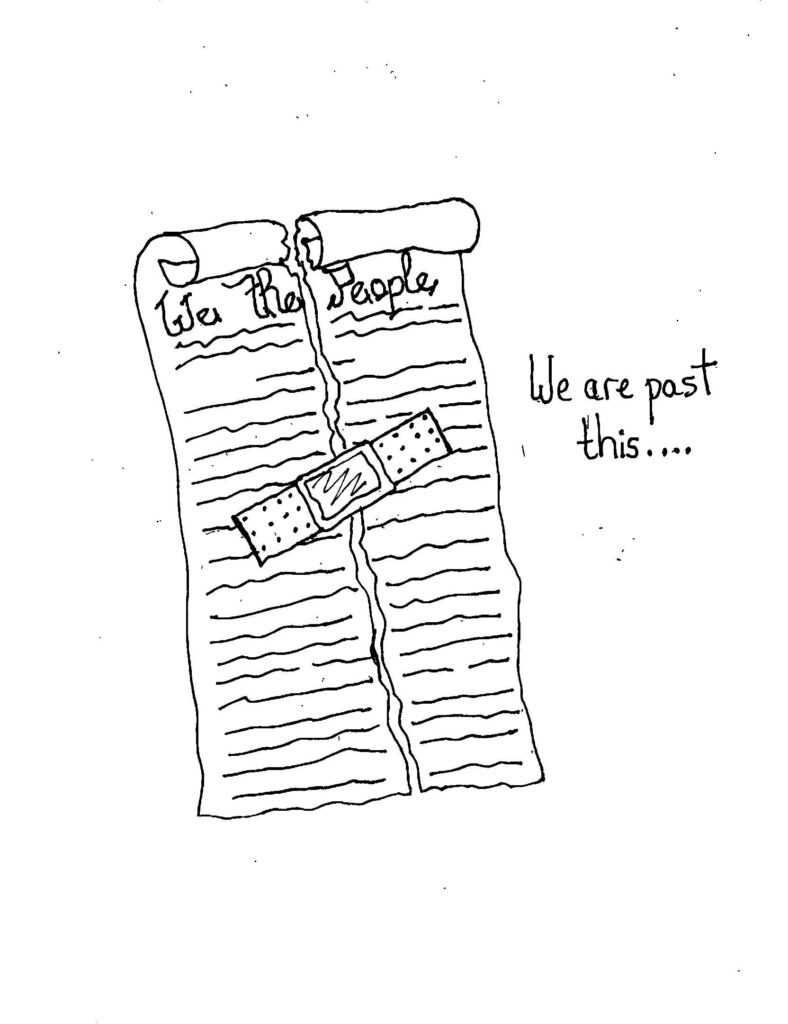 We the People
We are past
this....